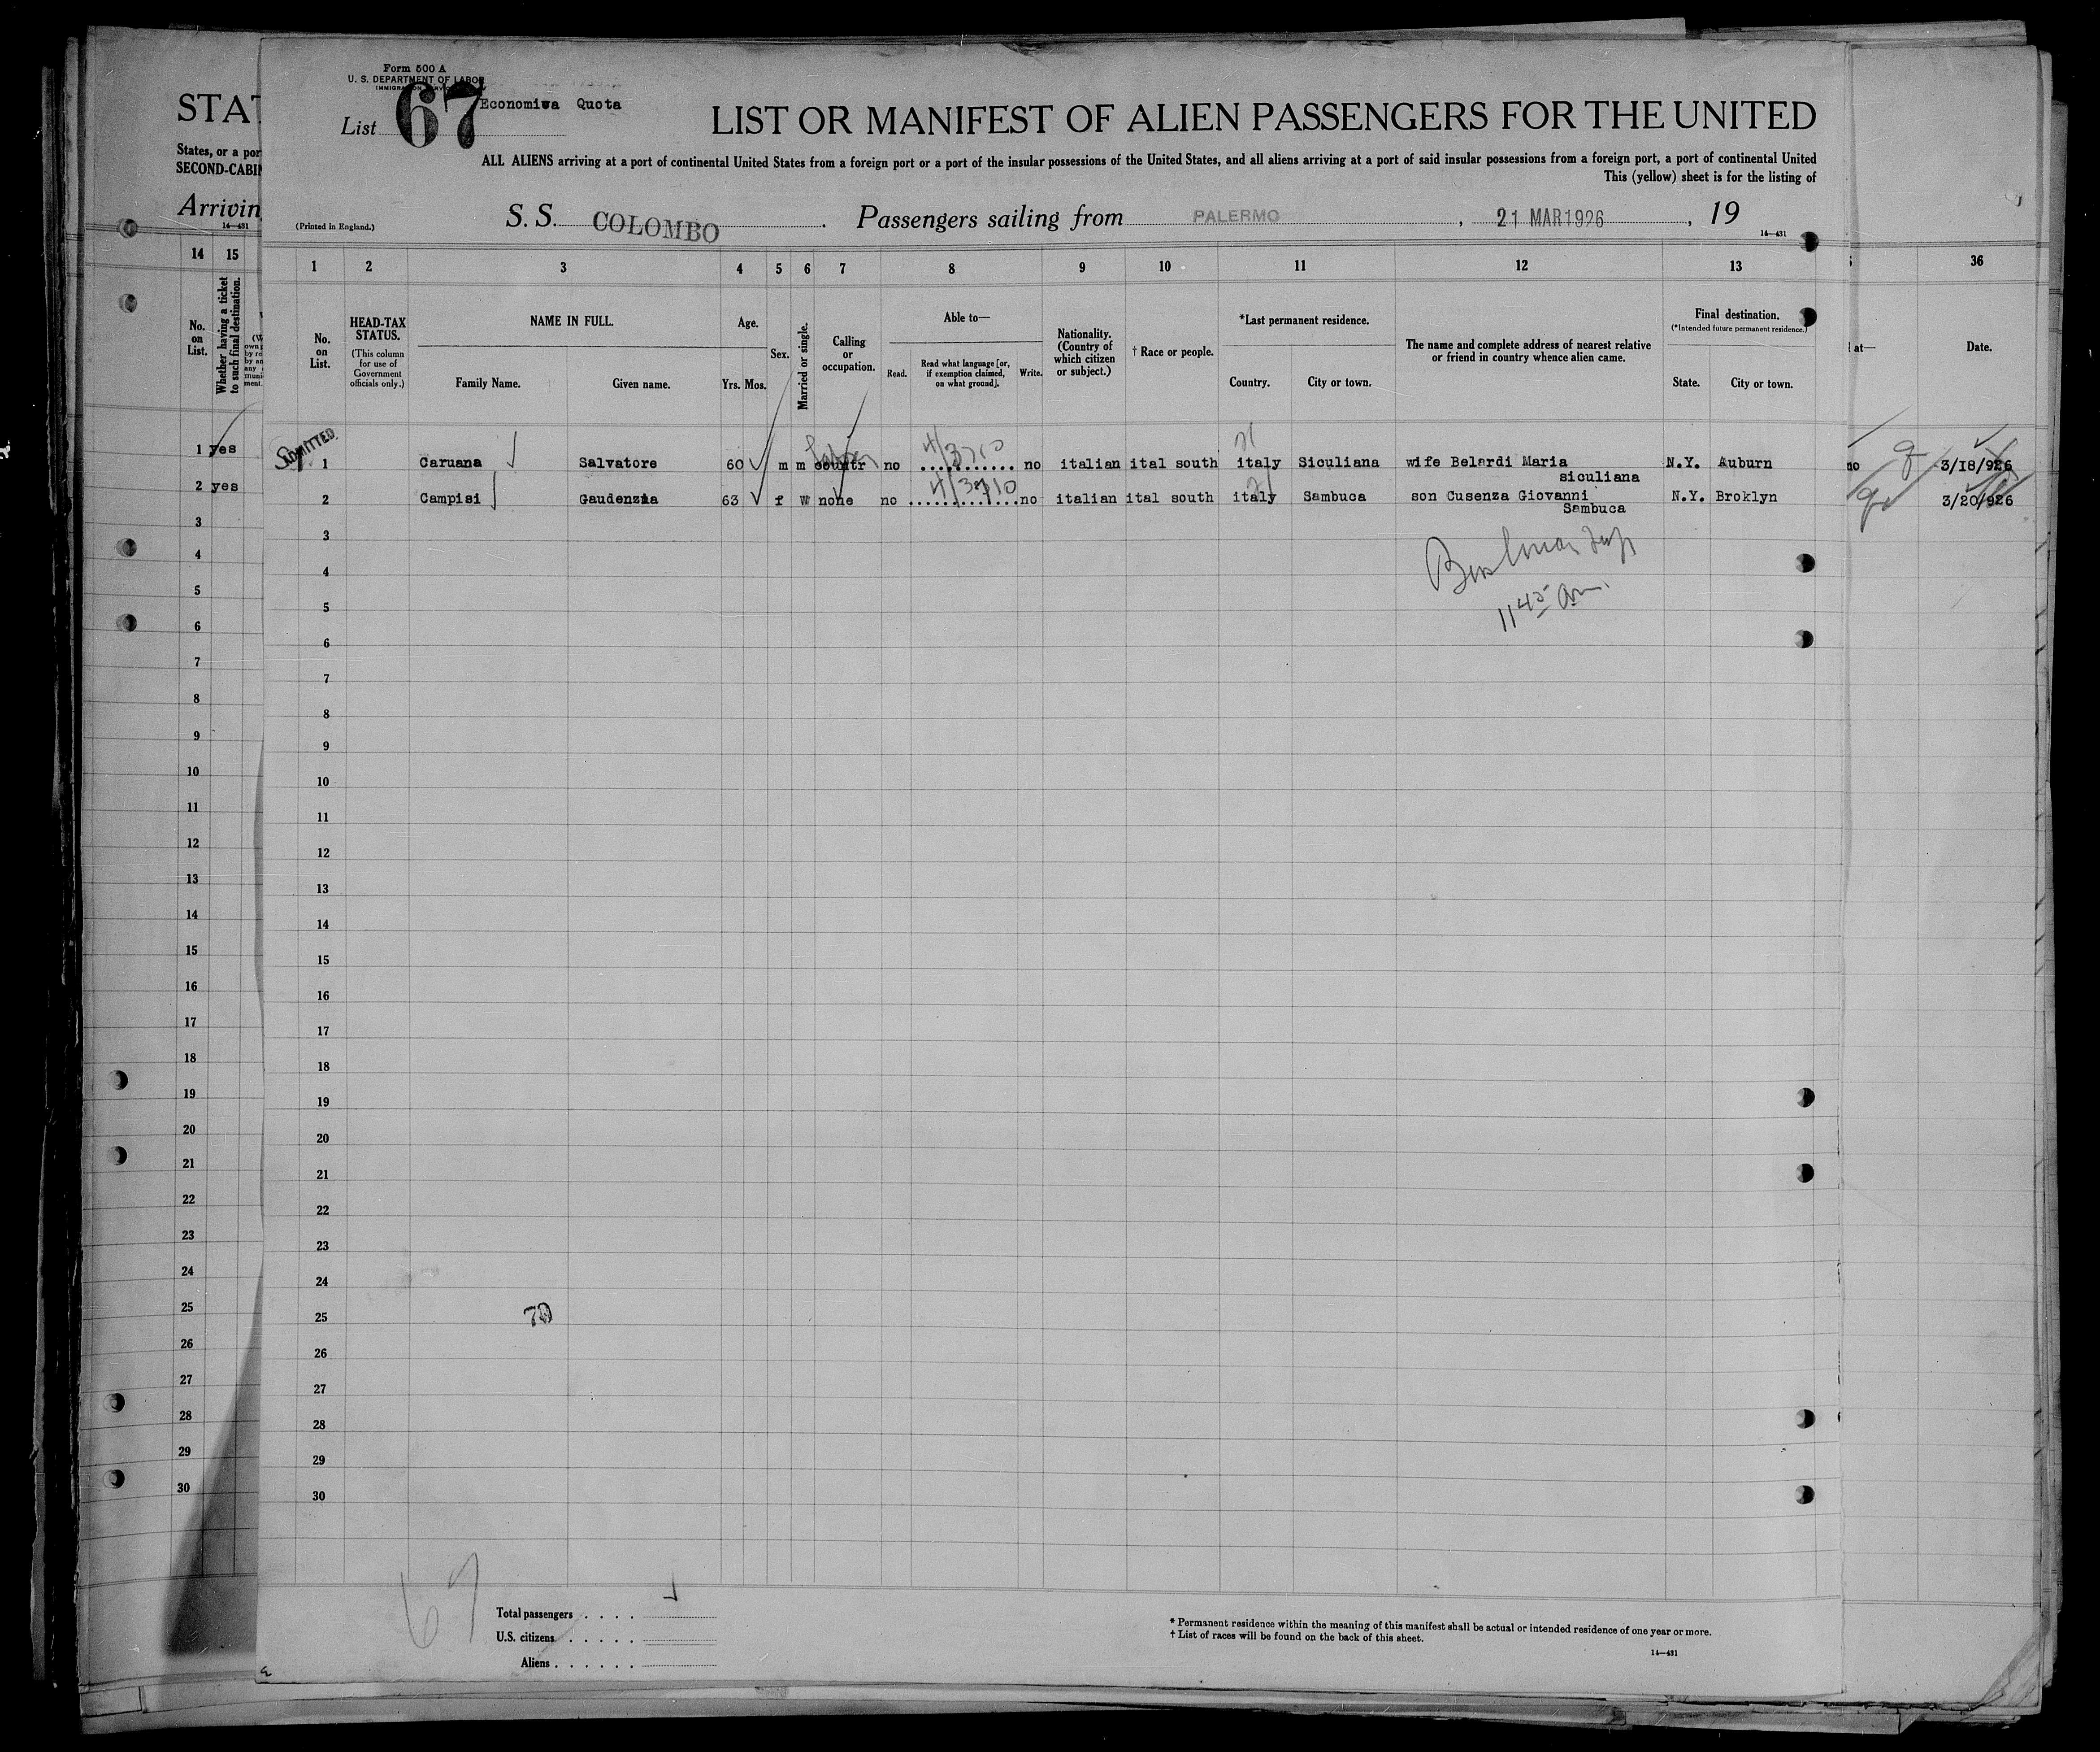 Form 500 A
U. S. DEPARTMENT OF LABOR
IMMIGRATION SERVICE
List 67 Economiwa Quota
LIST OR MANIFEST OF ALIEN PASSENGERS FOR THE UNITED
ALL ALIENS arriving at a port of continental United States from a foreign port or a port of the insular possessions of the United States, and all aliens arriving at a port of said insular possessions from a foreign port, a port of continental United
This (yellow) sheet is for the listing of
(Printed in England.)
S. S. COLOMBO. Passengers sailing from PALERMO, 21 MAR 1926, 19
14—431
1 2 3 4 5 6 7 8 9 10 11 12 13
No. on List.
HEAD-TAX STATUS.
(This column for use of Government officials only.)
NAME IN FULL.
Family Name. Given name.
Age.
Yrs. Mos.
Sex.
Married or single.
Calling or occupation.
Able to—
Read. Read what language [or, if exemption claimed, on what ground]. Write.
Nationality. (Country of which citizen or subject.)
† Race or people.
*Last permanent residence.
Country. City or town.
The name and complete address of nearest relative or friend in country whence alien came.
Final destination.
(*Intended future permanent residence.)
State. City or town.
ADMITTED
1 Caruana Salvatore 60 m m countr no ........... no italian ital south italy Siculiana wife Belardi Maria N.Y. Auburn
siculiana
2 Campisi Gaudenzia 63 f w none no ............ no italian ital south italy Sambuca son Cusenza Giovanni N.Y. Broklyn
Sambuca
11 45 am.
3
4
5
6
7
8
9
10
11
12
13
14
15
16
17
18
19
20
21
22
23
24
25
26
27
28
29
30
67
Total passengers
U.S. citizens
Aliens
* Permanent residence within the meaning of this manifest shall be actual or intended residence of one year or more.
† List of races will be found on the back of this sheet.
14—431
STAT
States, or a por
SECOND-CABIN
Arrivin
14—431
14 15
No. on List.
Whether having a ticket to such final destination.
1 yes
2 yes
3
4
5
6
7
8
9
10
11
12
13
14
15
16
17
18
19
20
21
22
23
24
25
26
27
28
29
30
36
at— Date.
no 3/18/926
3/20/926